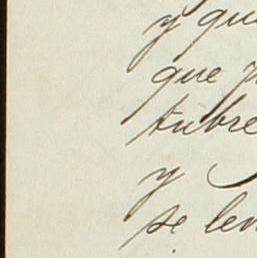 y qu
que
tubre
y
se len